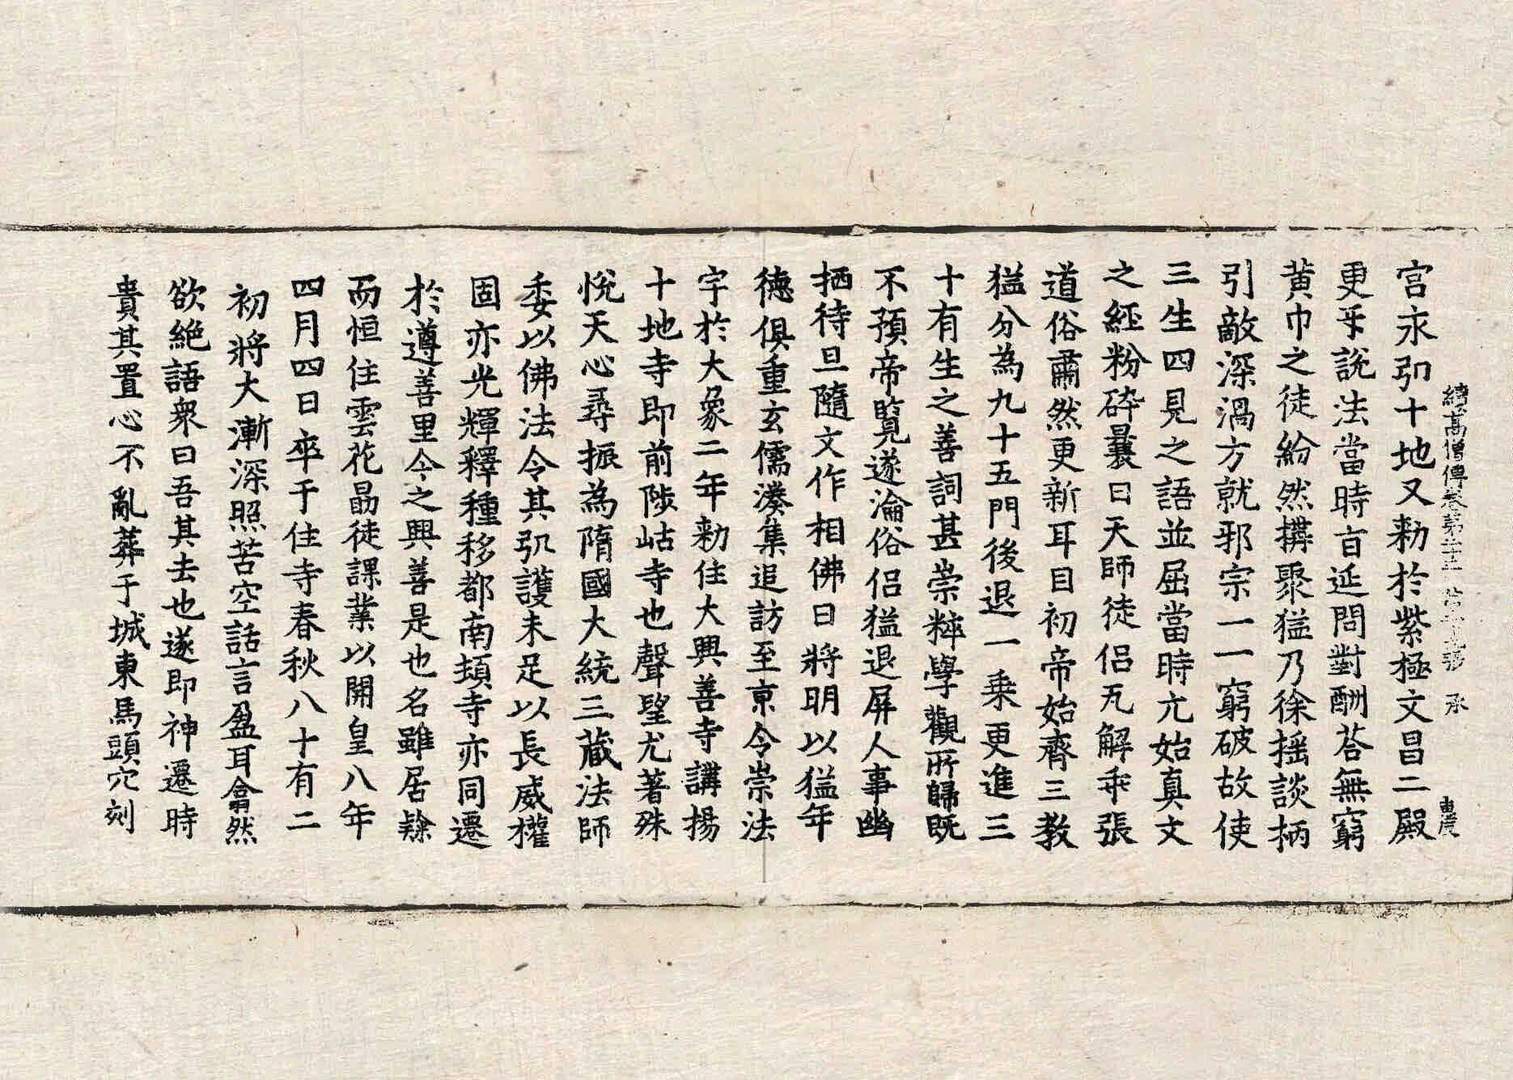 續高僧傳卷第二十三 第十九張 承
宫永引十地又勑於紫極文昌二殿
更互說法當時百延問對酬荅無窮
黃巾之徒紛然攢聚猛乃徐搖談柄
引敵深渦方就邪宗一一窮破故使
三生四見之語並屈當時亢始真文
之經粉碎曩日天師徒侣瓦解乖張
道俗肅然更新耳目初帝始齊三教
猛分為九十五門後退一乘更進三
十有生之善詞甚崇粹學觀所歸旣
不預帝覽遂淪俗侣猛退屏人事幽
栖待旦隨文作相佛日將明以猛年
德俱重玄儒湊集追訪至京令崇法
宇於大象二年勑住大興善寺講揚
十地寺即前陟岵寺也聲望尤著殊
悅天心尋振為隋國大統三藏法師
委以佛法令其弘護未足以長威權
固亦光輝釋種移都南頓寺亦同遷
於遵善里今之興善是也名雖居隸
而恒住雲花勗徒課業以開皇八年
四月四日卒于住寺春秋八十有二
初將大漸深照苦空話言盈耳翕然
欲絶語衆曰吾其去也遂即神遷時
貴其置心不亂葬于城東馬頭穴刻